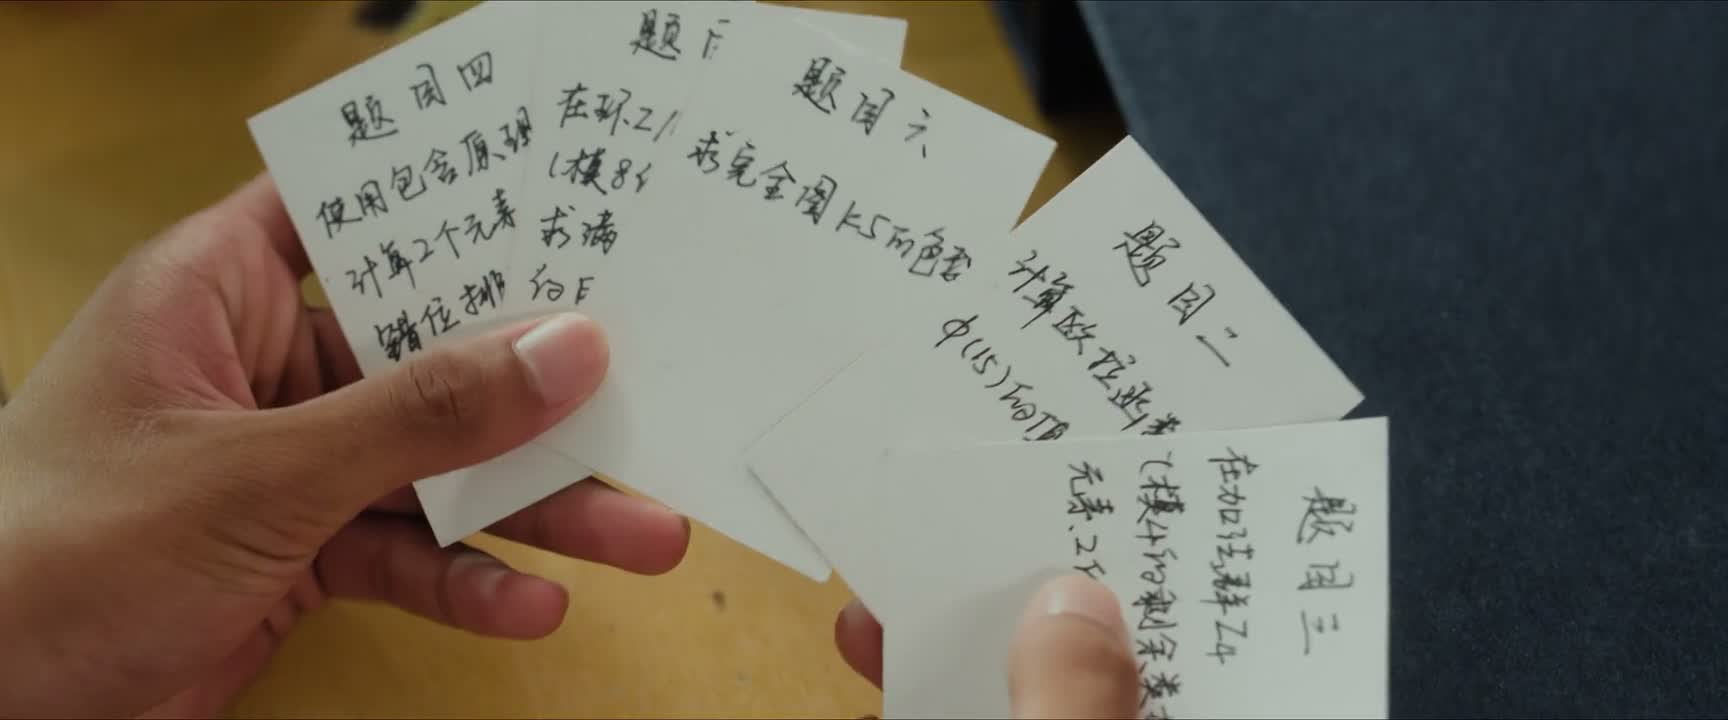 题目四
使用包含原理
计算2个元素
错位排
题目
在环Z/
(模8
求满
的
题目六
求完全图K5的色数
题目二
计算欧拉函数
φ(15)的值
题目三
在加法群Z4
(模4的剩余类
元素2